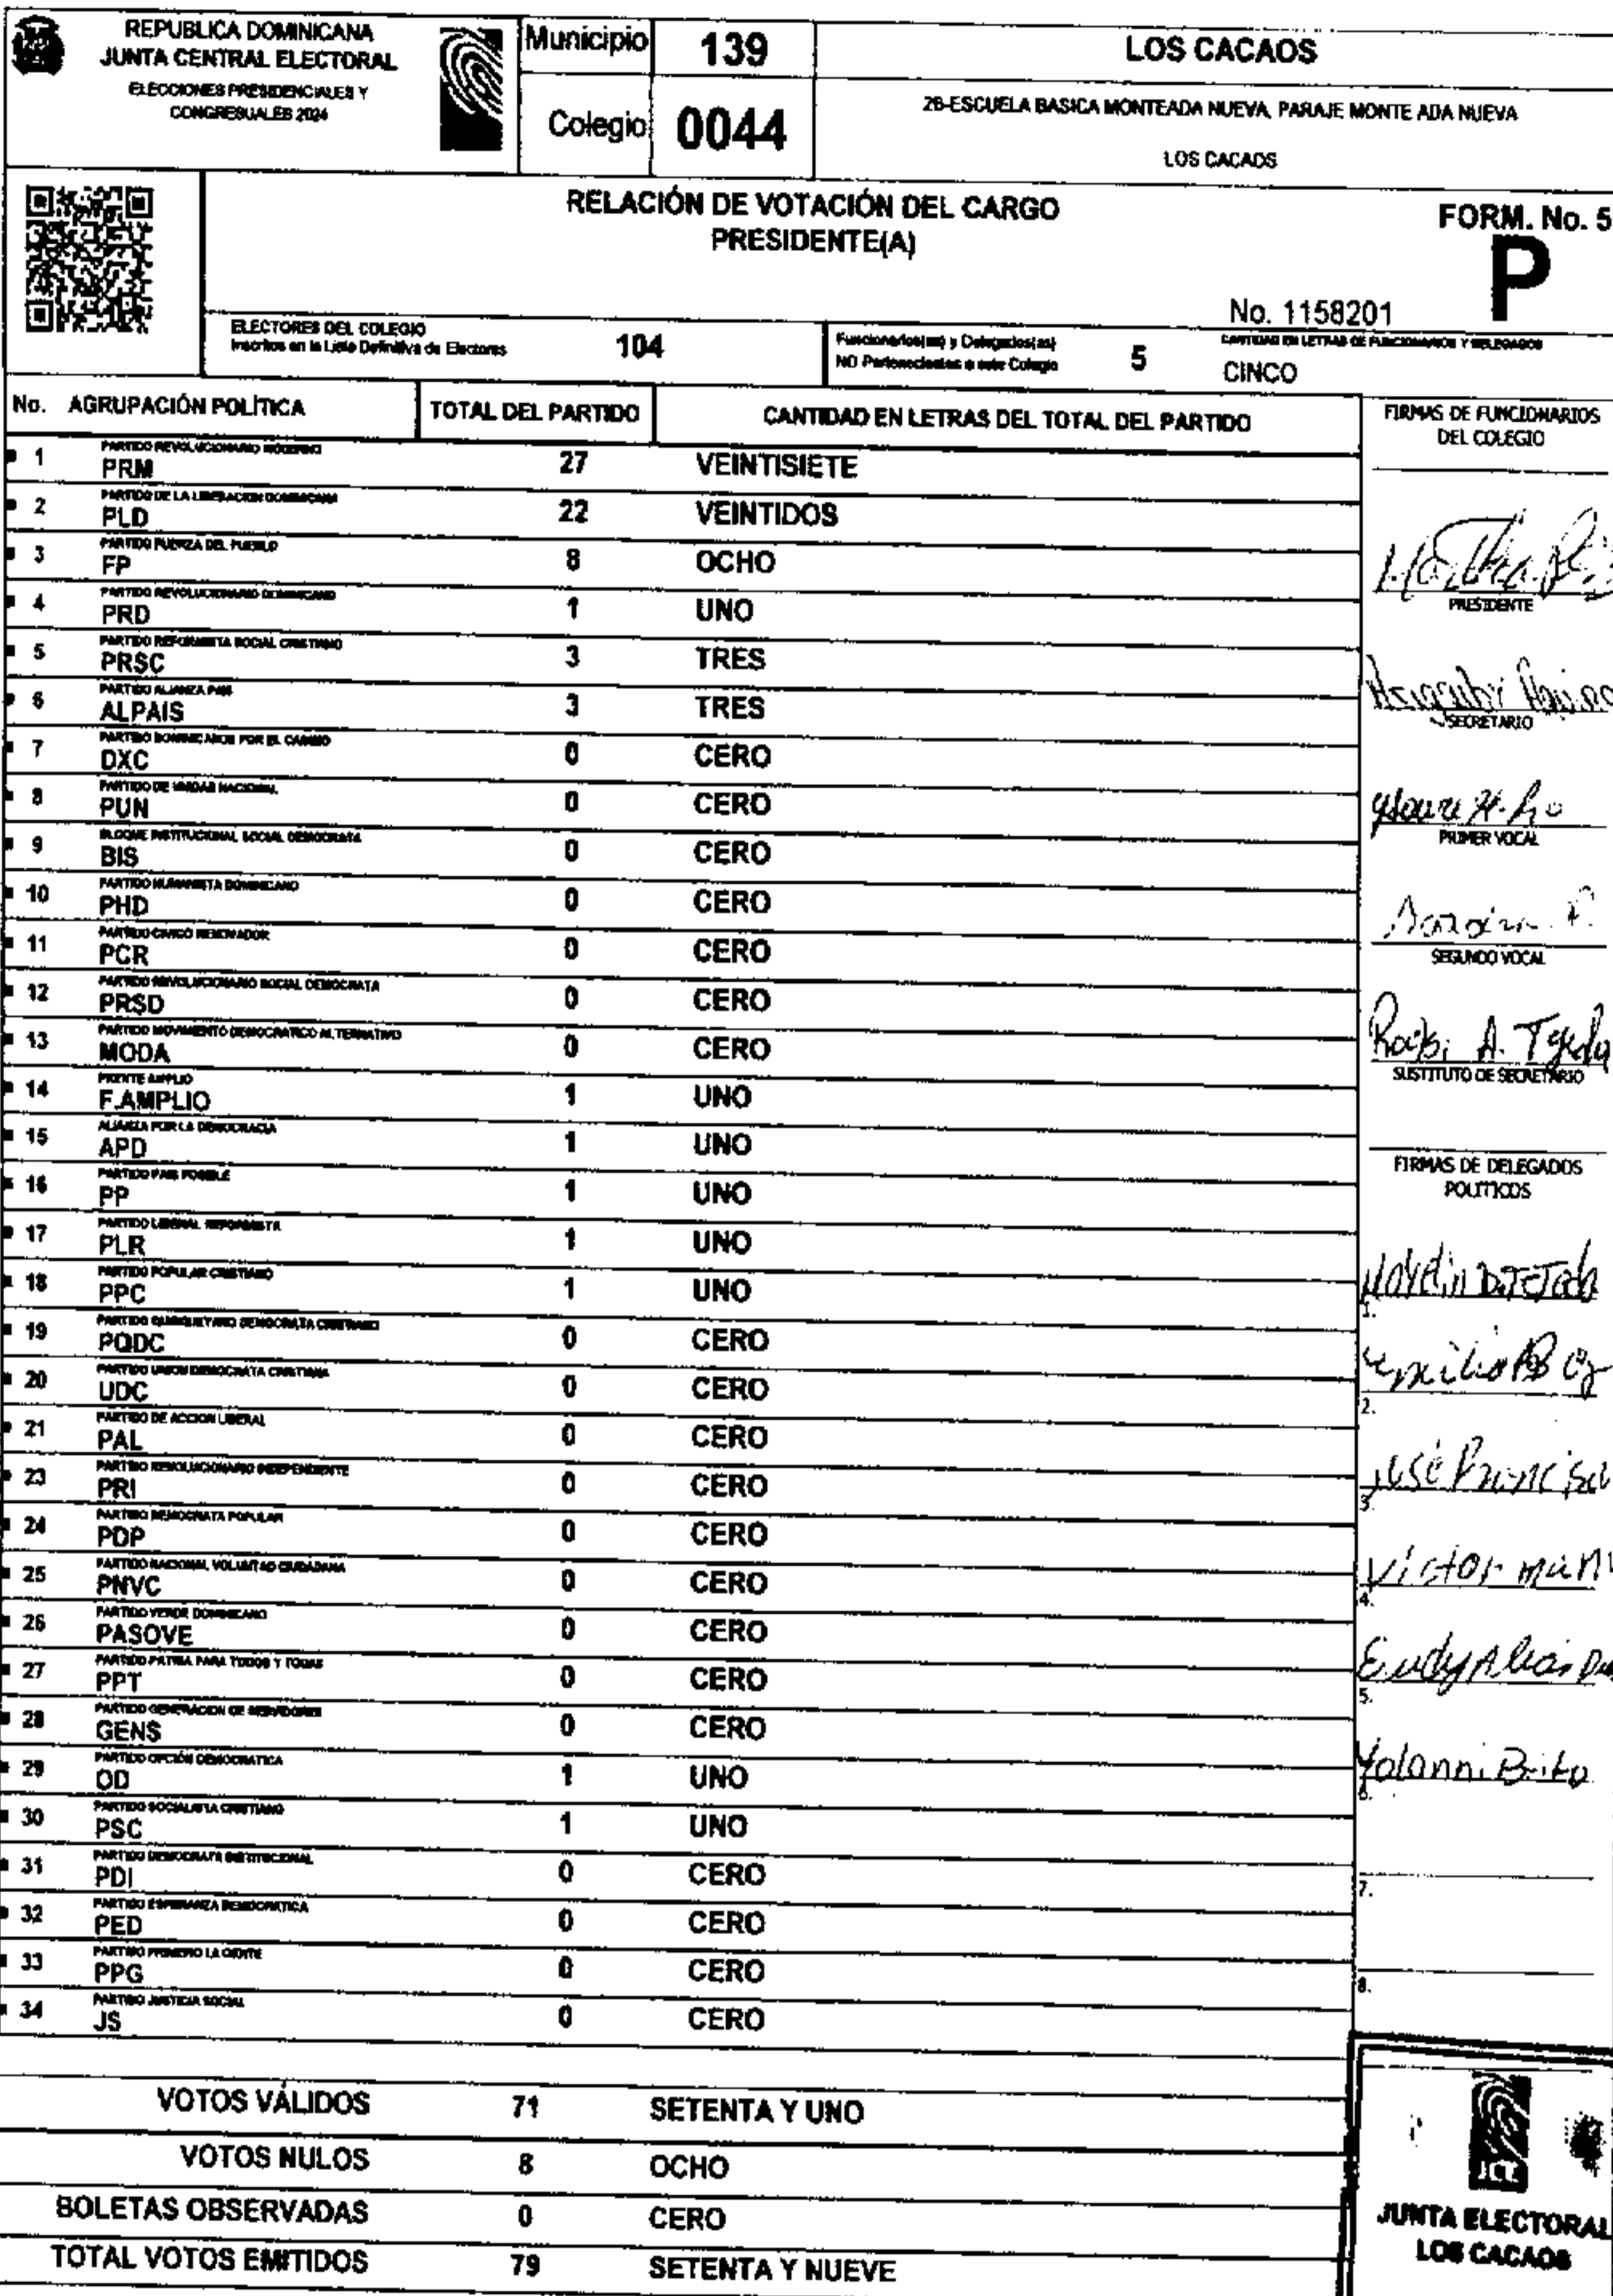 REPUBLICA DOMINICANA
JUNTA CENTRAL ELECTORAL
ELECCIONES PRESIDENCIALES Y
CONGRESUALES 2024
Municipio 139 LOS CACAOS
Colegio 0044
26-ESCUELA BASICA MONTEADA NUEVA, PARAJE MONTE ADA NUEVA
LOS CACAOS
RELACIÓN DE VOTACIÓN DEL CARGO
PRESIDENTE(A)
FORM. No. 5
P
No. 1158201
ELECTORES DEL COLEGIO
Inscritos en la Lista Definitiva de Electores 104
Funcionarios(as) y Delegados(as)
NO Pertenecientes a este Colegio 5
CANTIDAD EN LETRAS DE FUNCIONARIOS Y DELEGADOS
CINCO
No. AGRUPACIÓN POLÍTICA TOTAL DEL PARTIDO CANTIDAD EN LETRAS DEL TOTAL DEL PARTIDO
PARTIDO REVOLUCIONARIO MODERNO
1 PRM 27 VEINTISIETE
PARTIDO DE LA LIBERACION DOMINICANA
2 PLD 22 VEINTIDOS
PARTIDO FUERZA DEL PUEBLO
3 FP 8 OCHO
PARTIDO REVOLUCIONARIO DOMINICANO
4 PRD 1 UNO
PARTIDO REFORMISTA SOCIAL CRISTIANO
5 PRSC 3 TRES
PARTIDO ALIANZA PAIS
6 ALPAIS 3 TRES
PARTIDO DOMINICANOS POR EL CAMBIO
7 DXC 0 CERO
PARTIDO DE UNIDAD NACIONAL
8 PUN 0 CERO
BLOQUE INSTITUCIONAL SOCIAL DEMOCRATA
9 BIS 0 CERO
PARTIDO HUMANISTA DOMINICANO
10 PHD 0 CERO
PARTIDO CIVICO RENOVADOR
11 PCR 0 CERO
PARTIDO REVOLUCIONARIO SOCIAL DEMOCRATA
12 PRSD 0 CERO
PARTIDO MOVIMIENTO DEMOCRATICO ALTERNATIVO
13 MODA 0 CERO
FRENTE AMPLIO
14 F.AMPLIO 1 UNO
ALIANZA POR LA DEMOCRACIA
15 APD 1 UNO
PARTIDO PAIS POSIBLE
16 PP 1 UNO
PARTIDO LIBERAL REFORMISTA
17 PLR 1 UNO
PARTIDO POPULAR CRISTIANO
18 PPC 1 UNO
PARTIDO QUISQUEYANO DEMOCRATA CRISTIANO
19 PQDC 0 CERO
PARTIDO UNION DEMOCRATA CRISTIANA
20 UDC 0 CERO
PARTIDO DE ACCION LIBERAL
21 PAL 0 CERO
PARTIDO REVOLUCIONARIO INDEPENDIENTE
23 PRI 0 CERO
PARTIDO DEMOCRATA POPULAR
24 PDP 0 CERO
PARTIDO NACIONAL VOLUNTAD CIUDADANA
25 PNVC 0 CERO
PARTIDO VERDE DOMINICANO
26 PASOVE 0 CERO
PARTIDO PATRIA PARA TODOS Y TODAS
27 PPT 0 CERO
PARTIDO GENERACION DE SERVIDORES
28 GENS 0 CERO
PARTIDO OPCIÓN DEMOCRATICA
29 OD 1 UNO
PARTIDO SOCIALISTA CRISTIANO
30 PSC 1 UNO
PARTIDO DEMOCRATA INSTITUCIONAL
31 PDI 0 CERO
PARTIDO ESPERANZA DEMOCRATICA
32 PED 0 CERO
PARTIDO PRIMERO LA GENTE
33 PPG 0 CERO
PARTIDO JUSTICIA SOCIAL
34 JS 0 CERO
VOTOS VÁLIDOS 71 SETENTA Y UNO
VOTOS NULOS 8 OCHO
BOLETAS OBSERVADAS 0 CERO
TOTAL VOTOS EMITIDOS 79 SETENTA Y NUEVE
FIRMAS DE FUNCIONARIOS
DEL COLEGIO
PRESIDENTE
SECRETARIO
PRIMER VOCAL
SEGUNDO VOCAL
A. Tejeda
SUSTITUTO DE SECRETARIO
FIRMAS DE DELEGADOS
POLITICOS
1.
2.
José Francisco
3.
Victor
4.
Eudy
5.
Yolanni Brito
6.
7.
8.
JCE
JUNTA ELECTORAL
LOS CACAOS